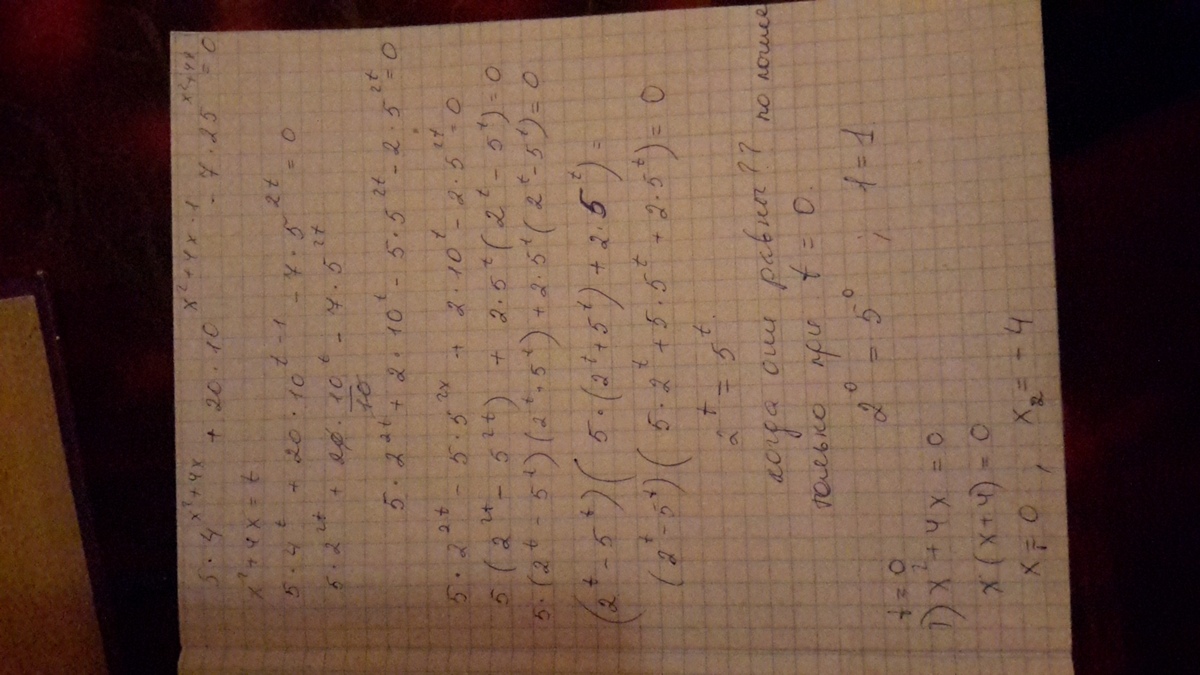 5 · 4^(x²+4x) + 20 · 10^(x²+4x-1) - 7 · 25^(x²+4x) = 0
x²+4x = t
5 · 4^t + 20 · 10^(t-1) - 7 · 5^(2t) = 0
5 · 2^(2t) + 20 · 10^t/10 - 7 · 5^(2t)
5 · 2^(2t) + 2 · 10^t - 5 · 5^(2t) - 2 · 5^(2t) = 0
5 · 2^(2t) - 5 · 5^(2x) + 2 · 10^t - 2 · 5^(2t) = 0
5 (2^(2t) - 5^(2t)) + 2 · 5^t (2^t - 5^t) = 0
5 · (2^t - 5^t)(2^t + 5^t) + 2 · 5^t (2^t - 5^t) = 0
(2^t - 5^t)(5 · (2^t + 5^t) + 2 · 5^t) =
(2^t - 5^t)(5 · 2^t + 5 · 5^t + 2 · 5^t) = 0
2^t = 5^t.
когда они равны?? по
только при t = 0.
2^0 = 5^0 ; 1 = 1
t = 0
1) x² + 4x = 0
x (x+4) = 0
x₁ = 0 , x₂ = - 4